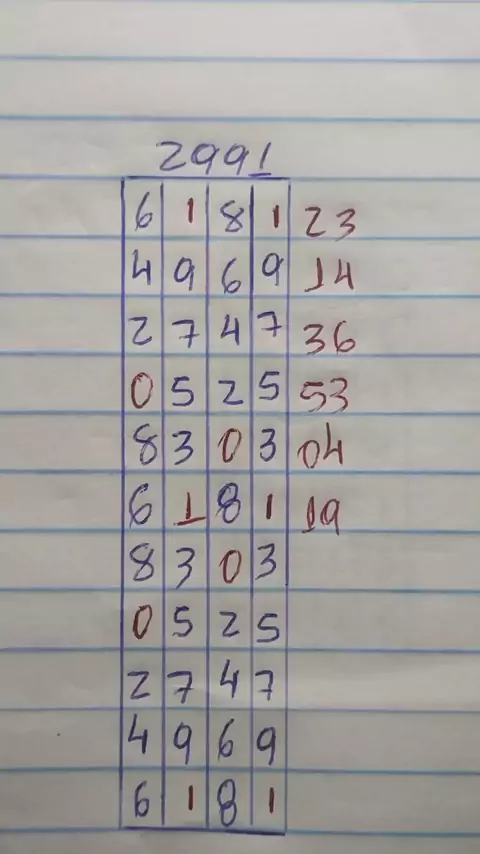 2991
6 1 8 1 23
4 9 6 9 14
2 7 4 7 36
0 5 2 5 53
8 3 0 3 04
6 1 8 1 19
8 3 0 3
0 5 2 5
2 7 4 7
4 9 6 9
6 1 8 1